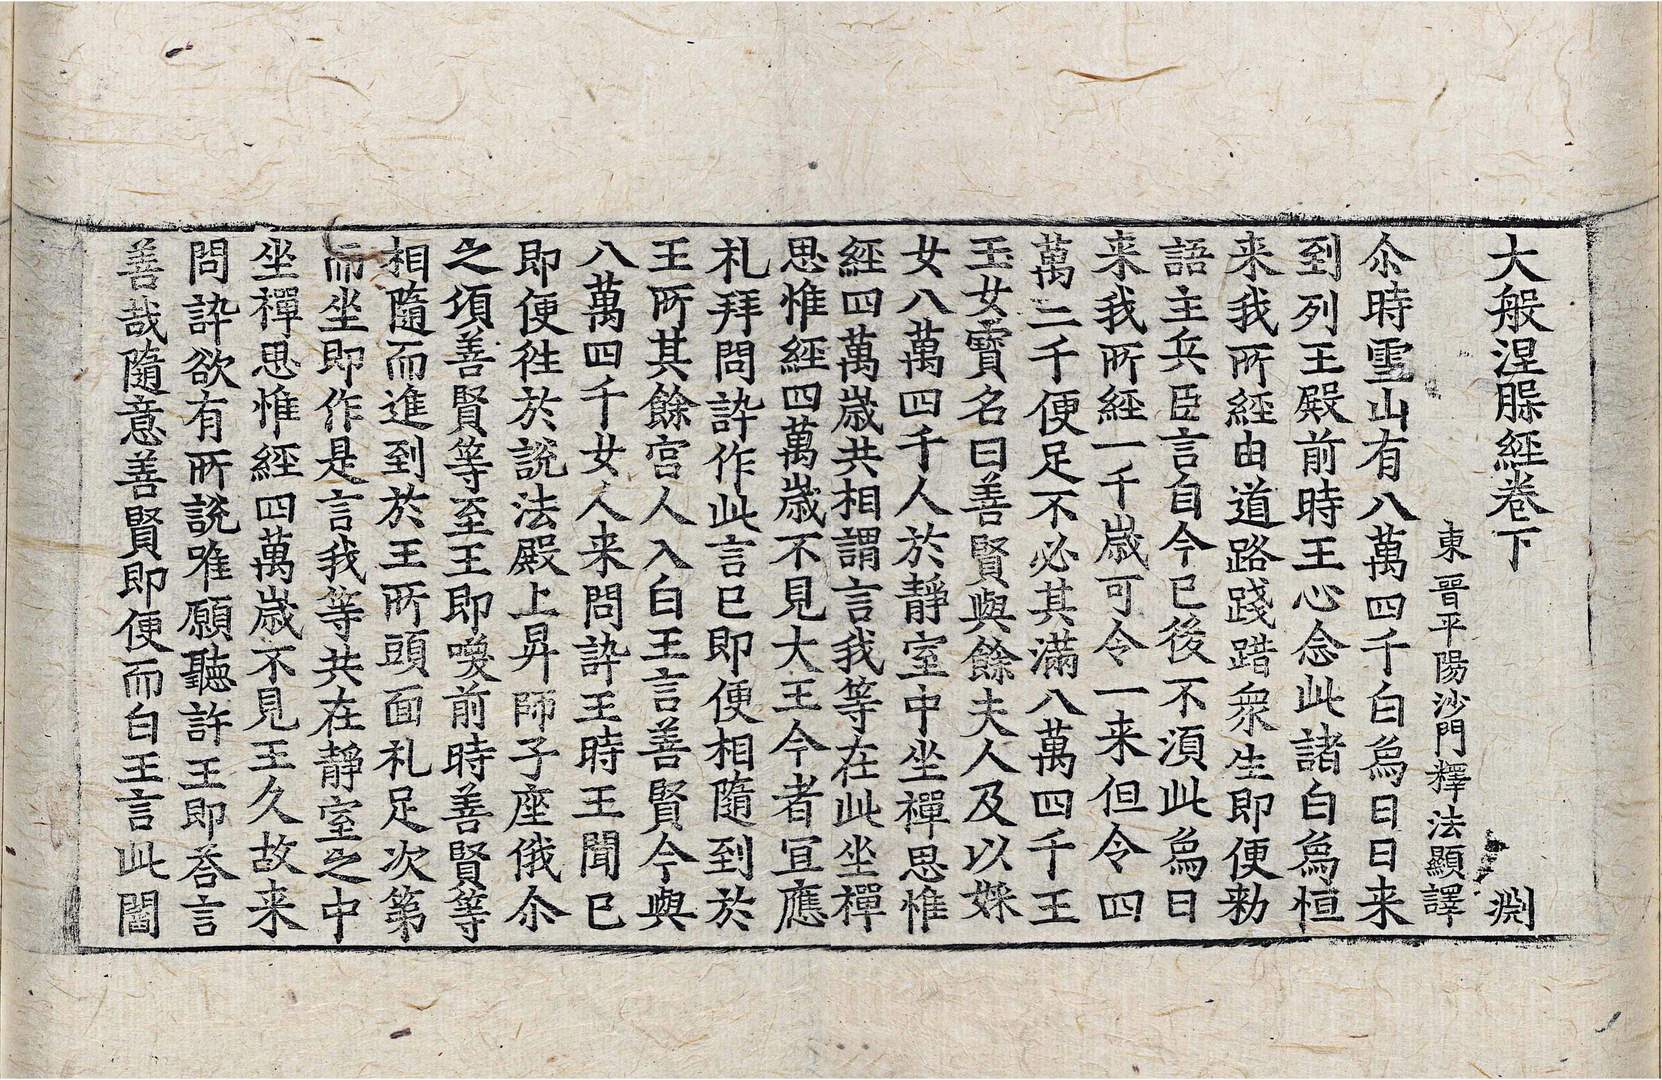 大般涅槃經卷下　淵
東晉平陽沙門釋法顯譯
尒時雪山有八萬四千白烏日日来
到列王殿前時王心念此諸白烏恒
来我所經由道路踐蹋衆生即便勑
語主兵臣言自今已後不湏此烏日
来我所經一千歲可令一来但令四
萬二千便足不必其滿八萬四千王
玉女寶名曰善賢與餘夫人及以婇
女八萬四千人於靜室中坐禪思惟
經四萬歲共相謂言我等在此坐禪
思惟經四萬歲不見大王今者宜應
礼拜問訃作此言已即便相隨到於
王所其餘宮人入白王言善賢今與
八萬四千女人来問訃王時王聞已
即便徃於說法殿上昇師子座俄尒
之頃善賢等至王即喚前時善賢等
相隨而進到於王所頭面礼足次第
而坐即作是言我等共在靜室之中
坐禪思惟經四萬歲不見王久故来
問訃欲有所說唯願聽許王即荅言
善哉隨意善賢即便而白王言此閻